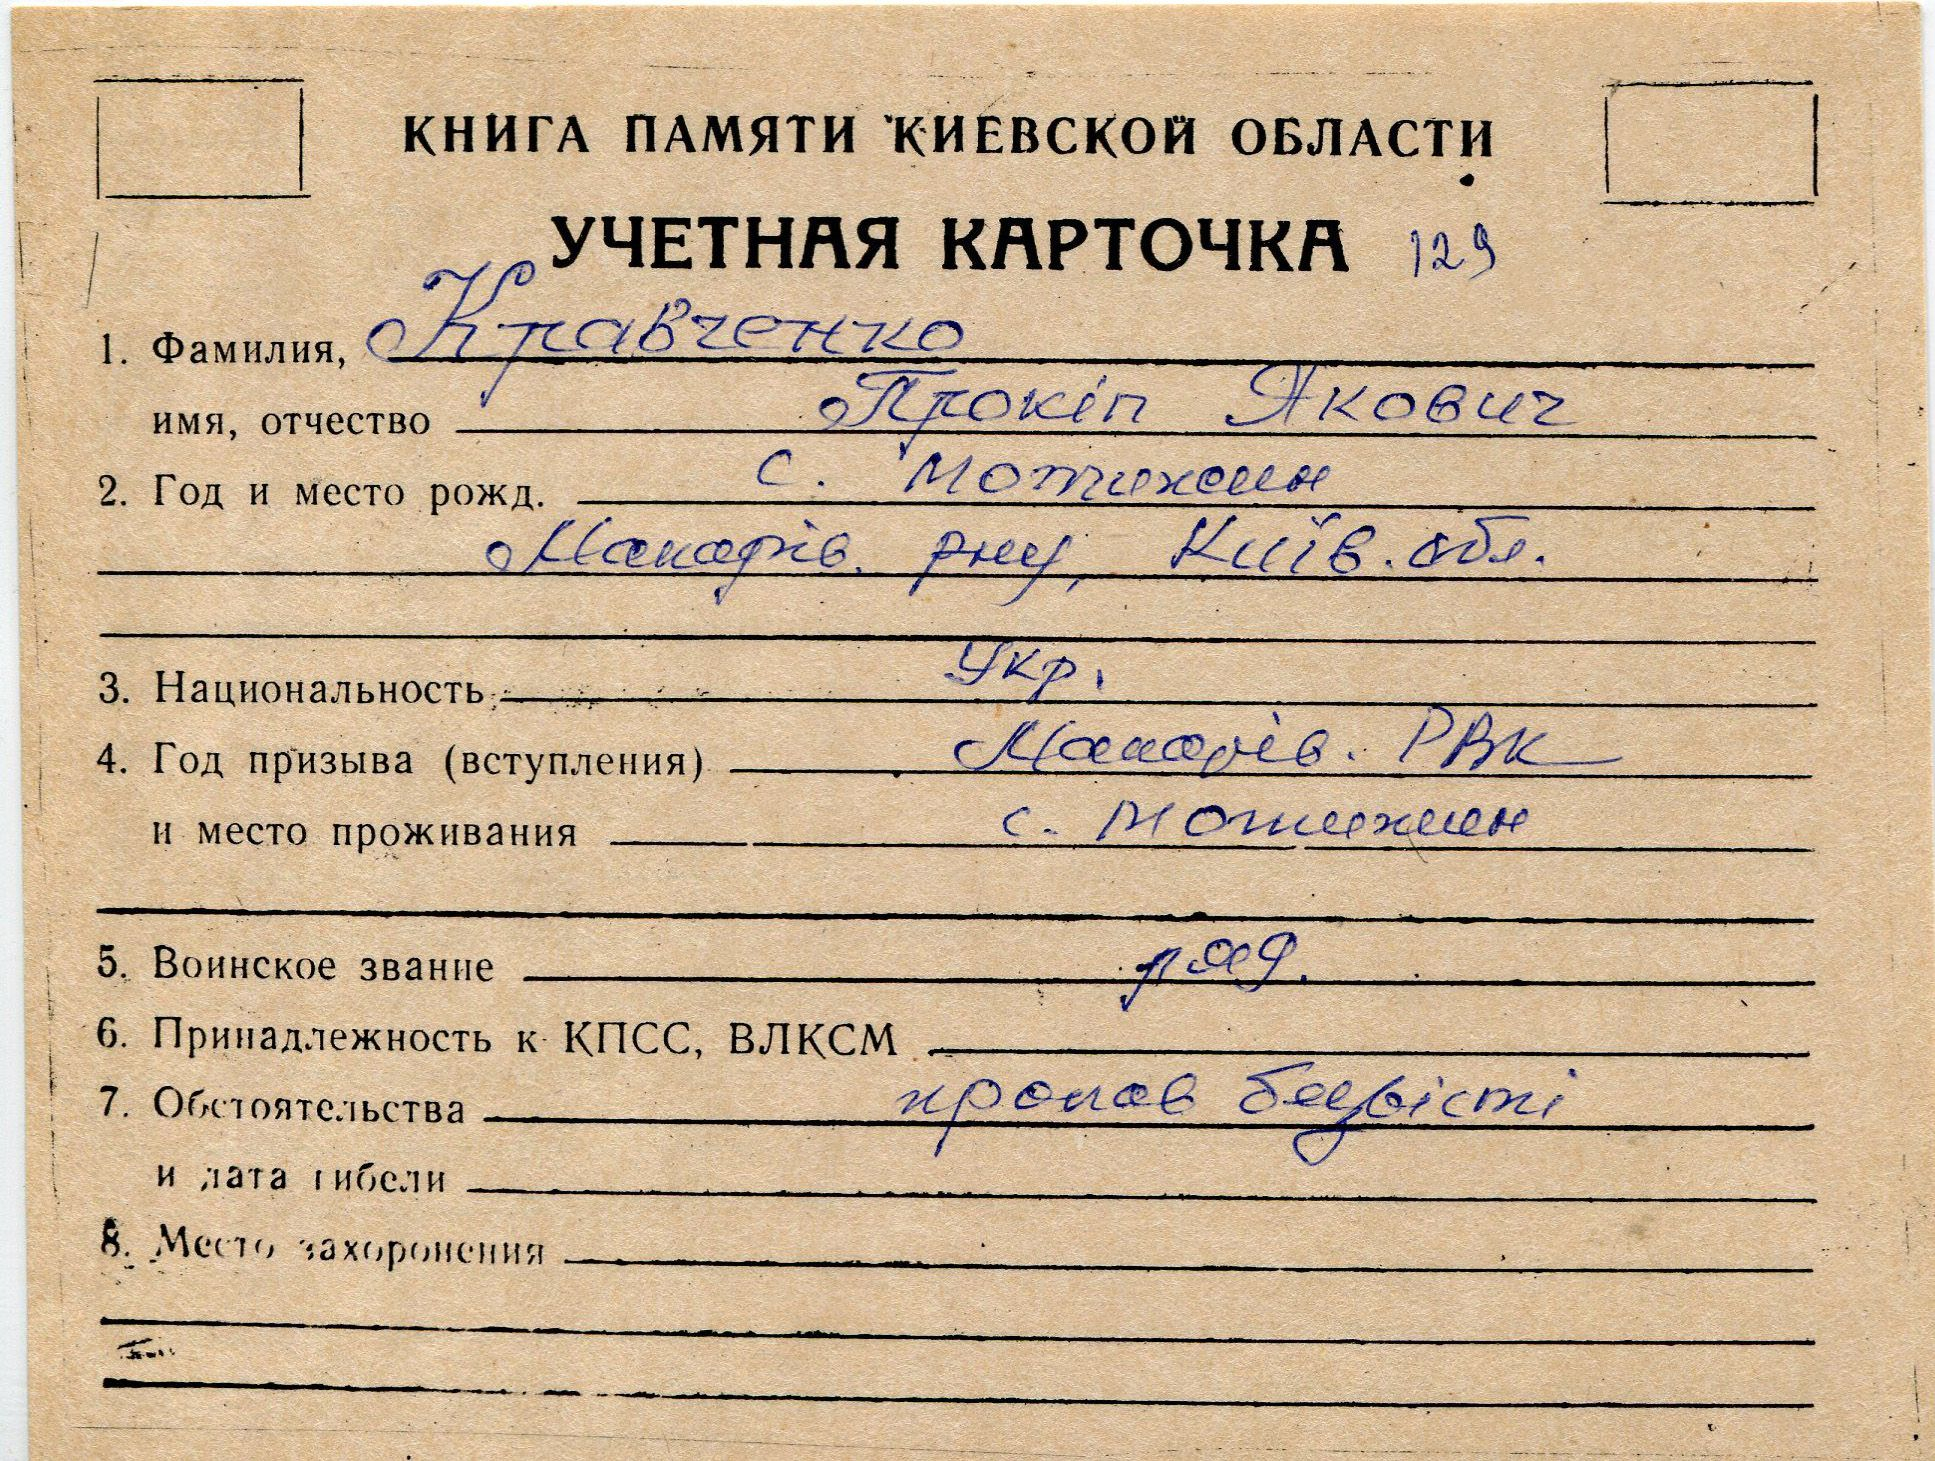 КНИГА ПАМЯТИ КИЕВСКОЙ ОБЛАСТИ
УЧЕТНАЯ КАРТОЧКА 129
1. Фамилия, Кравченко
имя, отчество Прокіп Якович
2. Год и место рожд. с. Мотижин
Макарів. рну, Київ. обл.
3. Национальность Укр.
4. Год призыва (вступления) Макарів. РВК
и место проживания с. Мотижин
5. Воинское звание ряд.
6. Принадлежность к КПСС, ВЛКСМ
7. Обстоятельства пропав безвісті
и дата гибели
8. Место захоронения